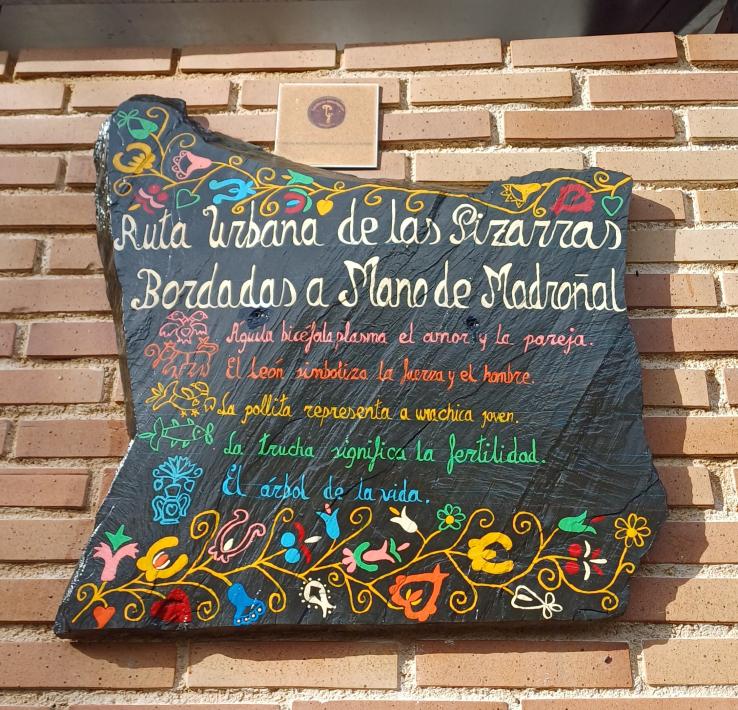 Ruta Urbana de las Pizarras
Bordadas a Mano de Madroñal
Águila bicéfala plasma el amor y la pareja.
El león simboliza la fuerza y el hombre.
La pollita representa a una chica joven.
La trucha significa la fertilidad.
El árbol de la vida.